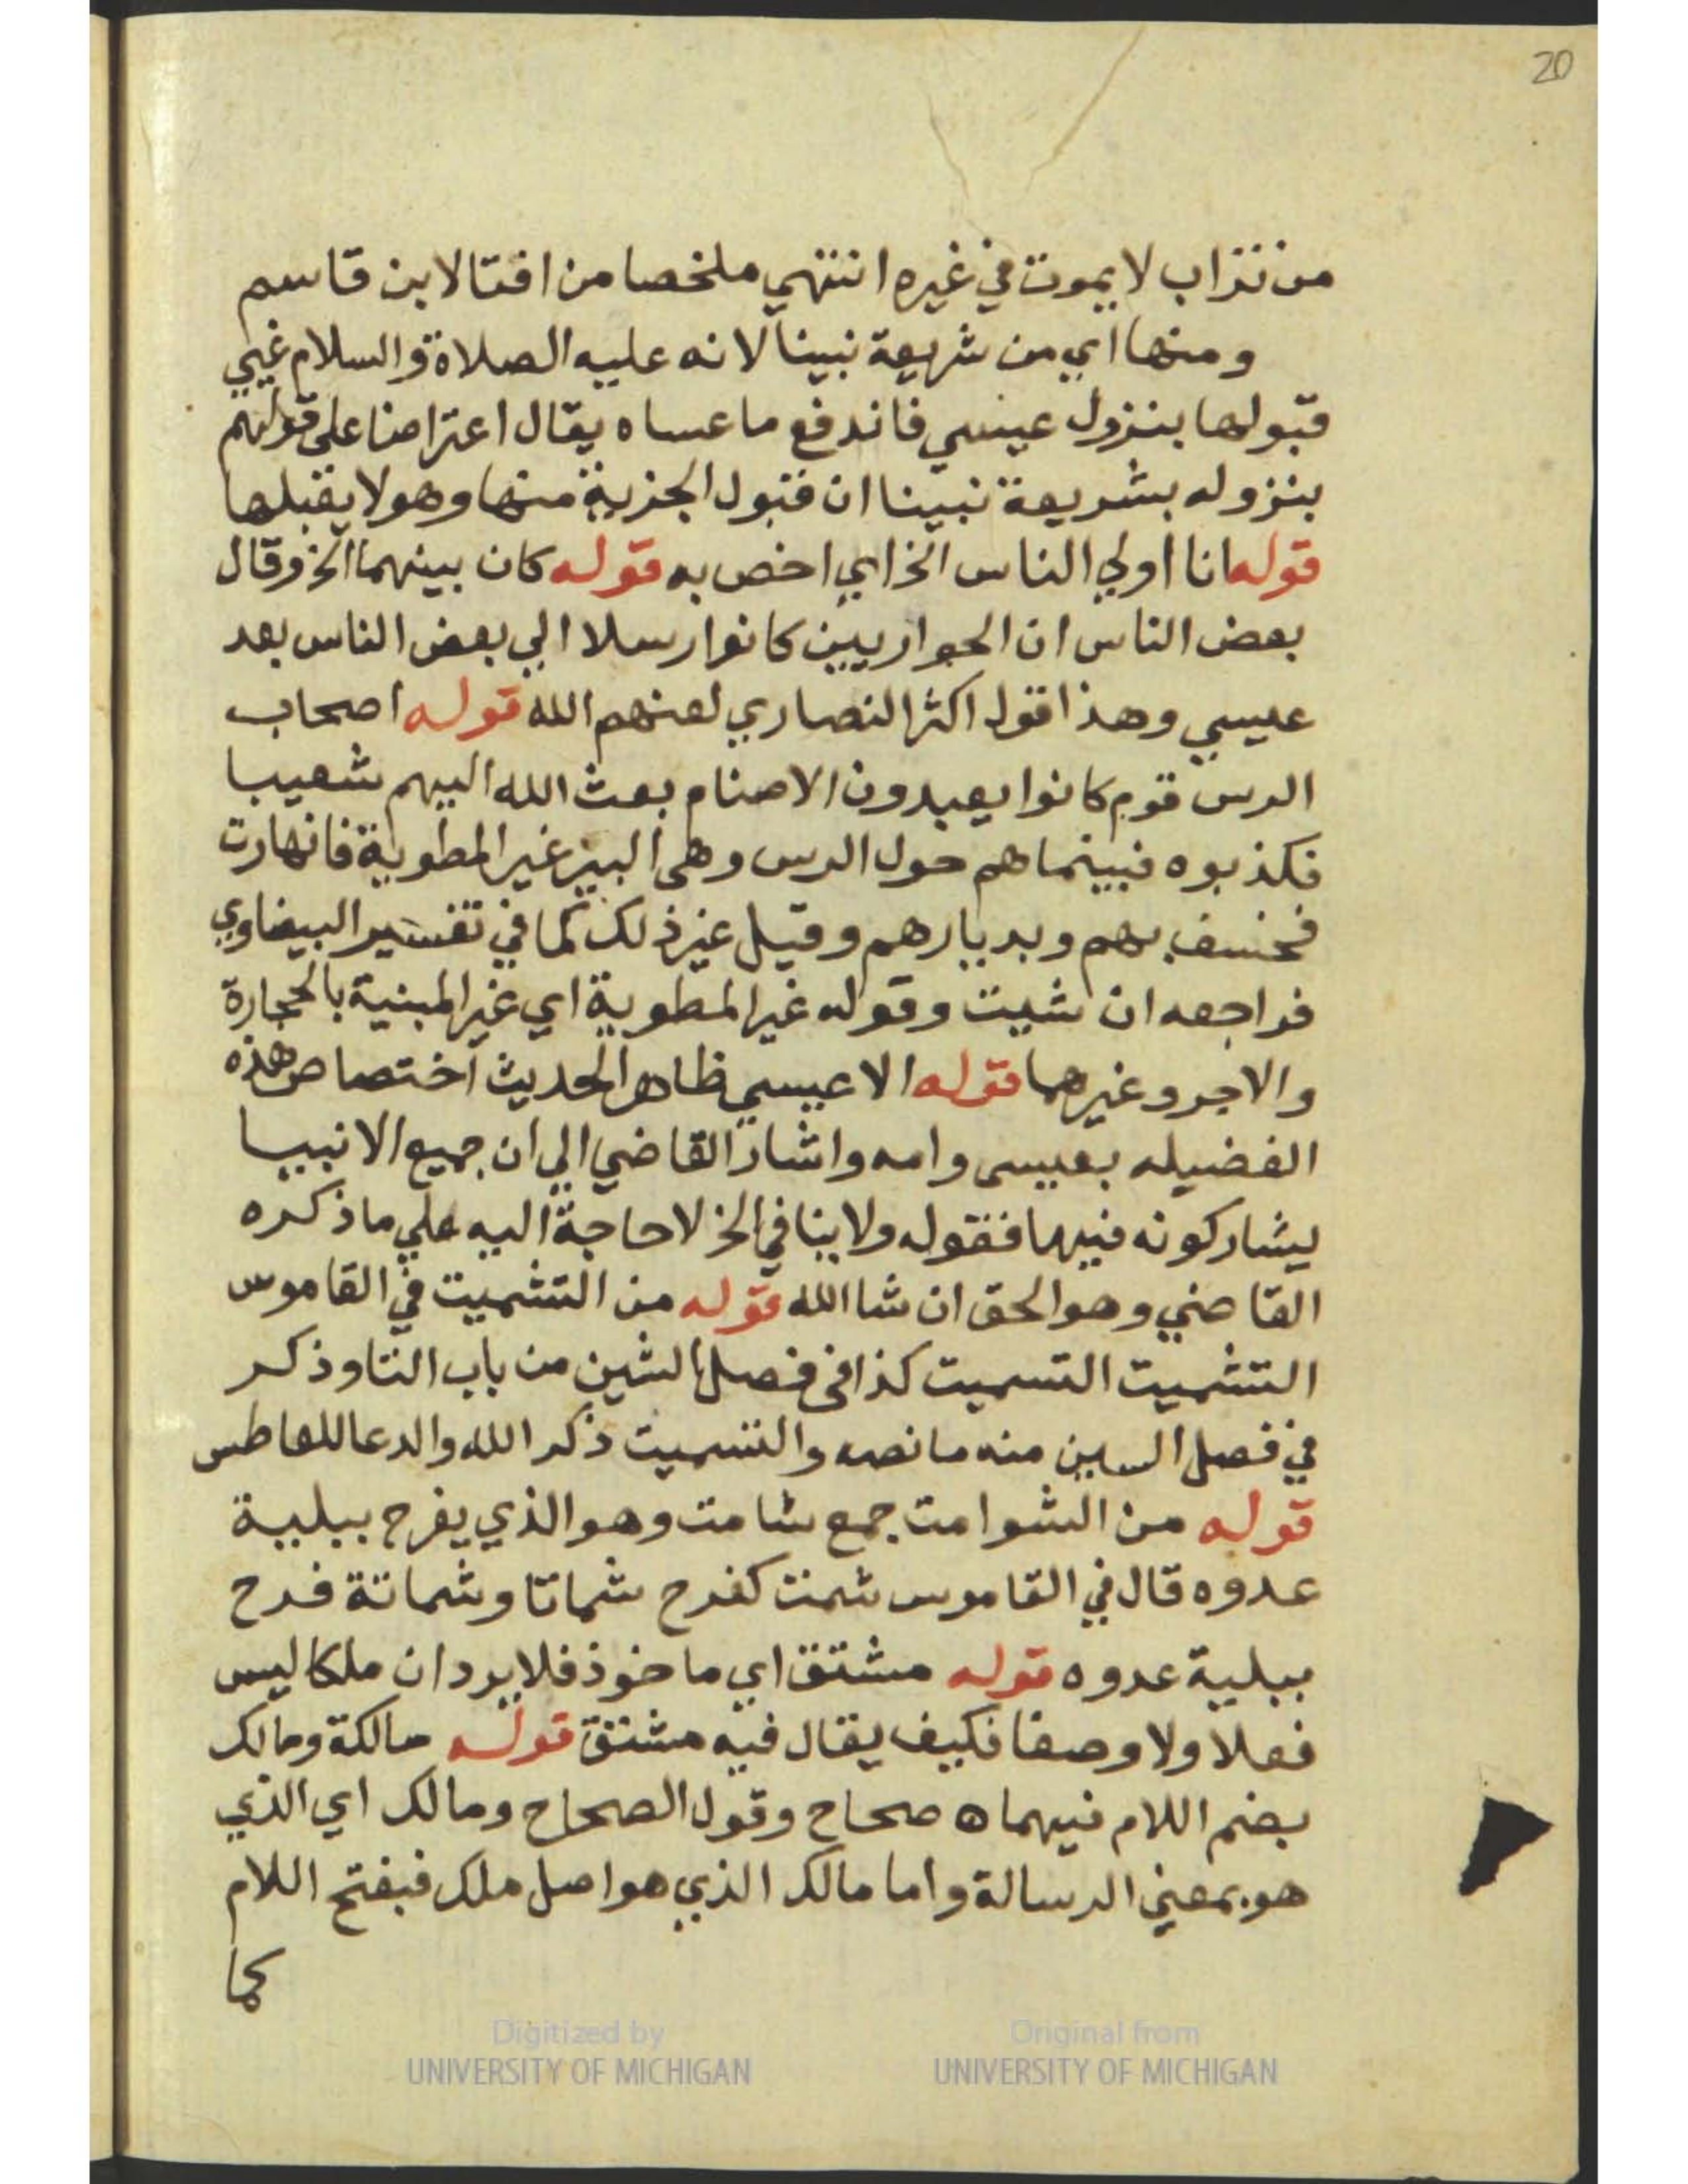 20
من تراب لا يموت في غيره انتهي ملخصا من افتا لابن قاسم
ومنها اي من شريعة نبينا لانه عليه الصلاة والسلام غيي
قبولها بنزول عيسي فاندفع ما عساه يقال اعتراضا على قولهم
بنزوله بشريعة نبينا ان قبول الجزية منها وهو لا يقبلها
قوله انا اولي الناس الخ اي اخص به قوله كان بينهما الخ وقال
بعض الناس ان الحواريين كانوا رسلا الي بعض الناس بعد
عيسي وهذا قول اكثر النصاري لعنهم الله قوله اصحاب
الرس قوم كانوا يعبدون الاصنام بعث الله اليهم شعيبا
فكذبوه فبينما هم حول الرس وهي البير غير المطوية فانهارت
فخسف بهم وبديارهم وقيل غير ذلك كما في تفسير البيضاوي
فراجعه ان شيت وقوله غير المطوية اي غير المبنية بالحجارة
والاجر وغيرهما قوله الا عيسي ظاهر الحديث اختصاص هذه
الفضيله بعيسى وامه واشار القاضي الي ان جميع الانبيا
يشاركونه فيها فقوله ولا ينافي الخ لا حاجة اليه علي ما ذكره
القاضي وهو الحق ان شا الله قوله من التشميت في القاموس
التشميت التسميت كذا في فصل الشين من باب التا وذكر
في فصل السين منه ما نصه والتسميت ذكر الله والدعا للعاطس
قوله من الشوامت جمع شامت وهو الذي يفرح ببلية
عدوه قال في القاموس شمت كفرح شماتا وشماتة فرح
ببلية عدوه قوله مشتق اي ماخوذ فلا يرد ان ملكا ليس
فعلا ولا وصفا فكيف يقال فيه مشتق قوله مالكة ومالك
بضم اللام فيهما ه صحاح وقول الصحاح ومالك اي الذي
هو بمعني الرسالة واما مالك الذي هو اصل ملك فبفتح اللام
كما
Digitized by
UNIVERSITY OF MICHIGAN
Original from
UNIVERSITY OF MICHIGAN